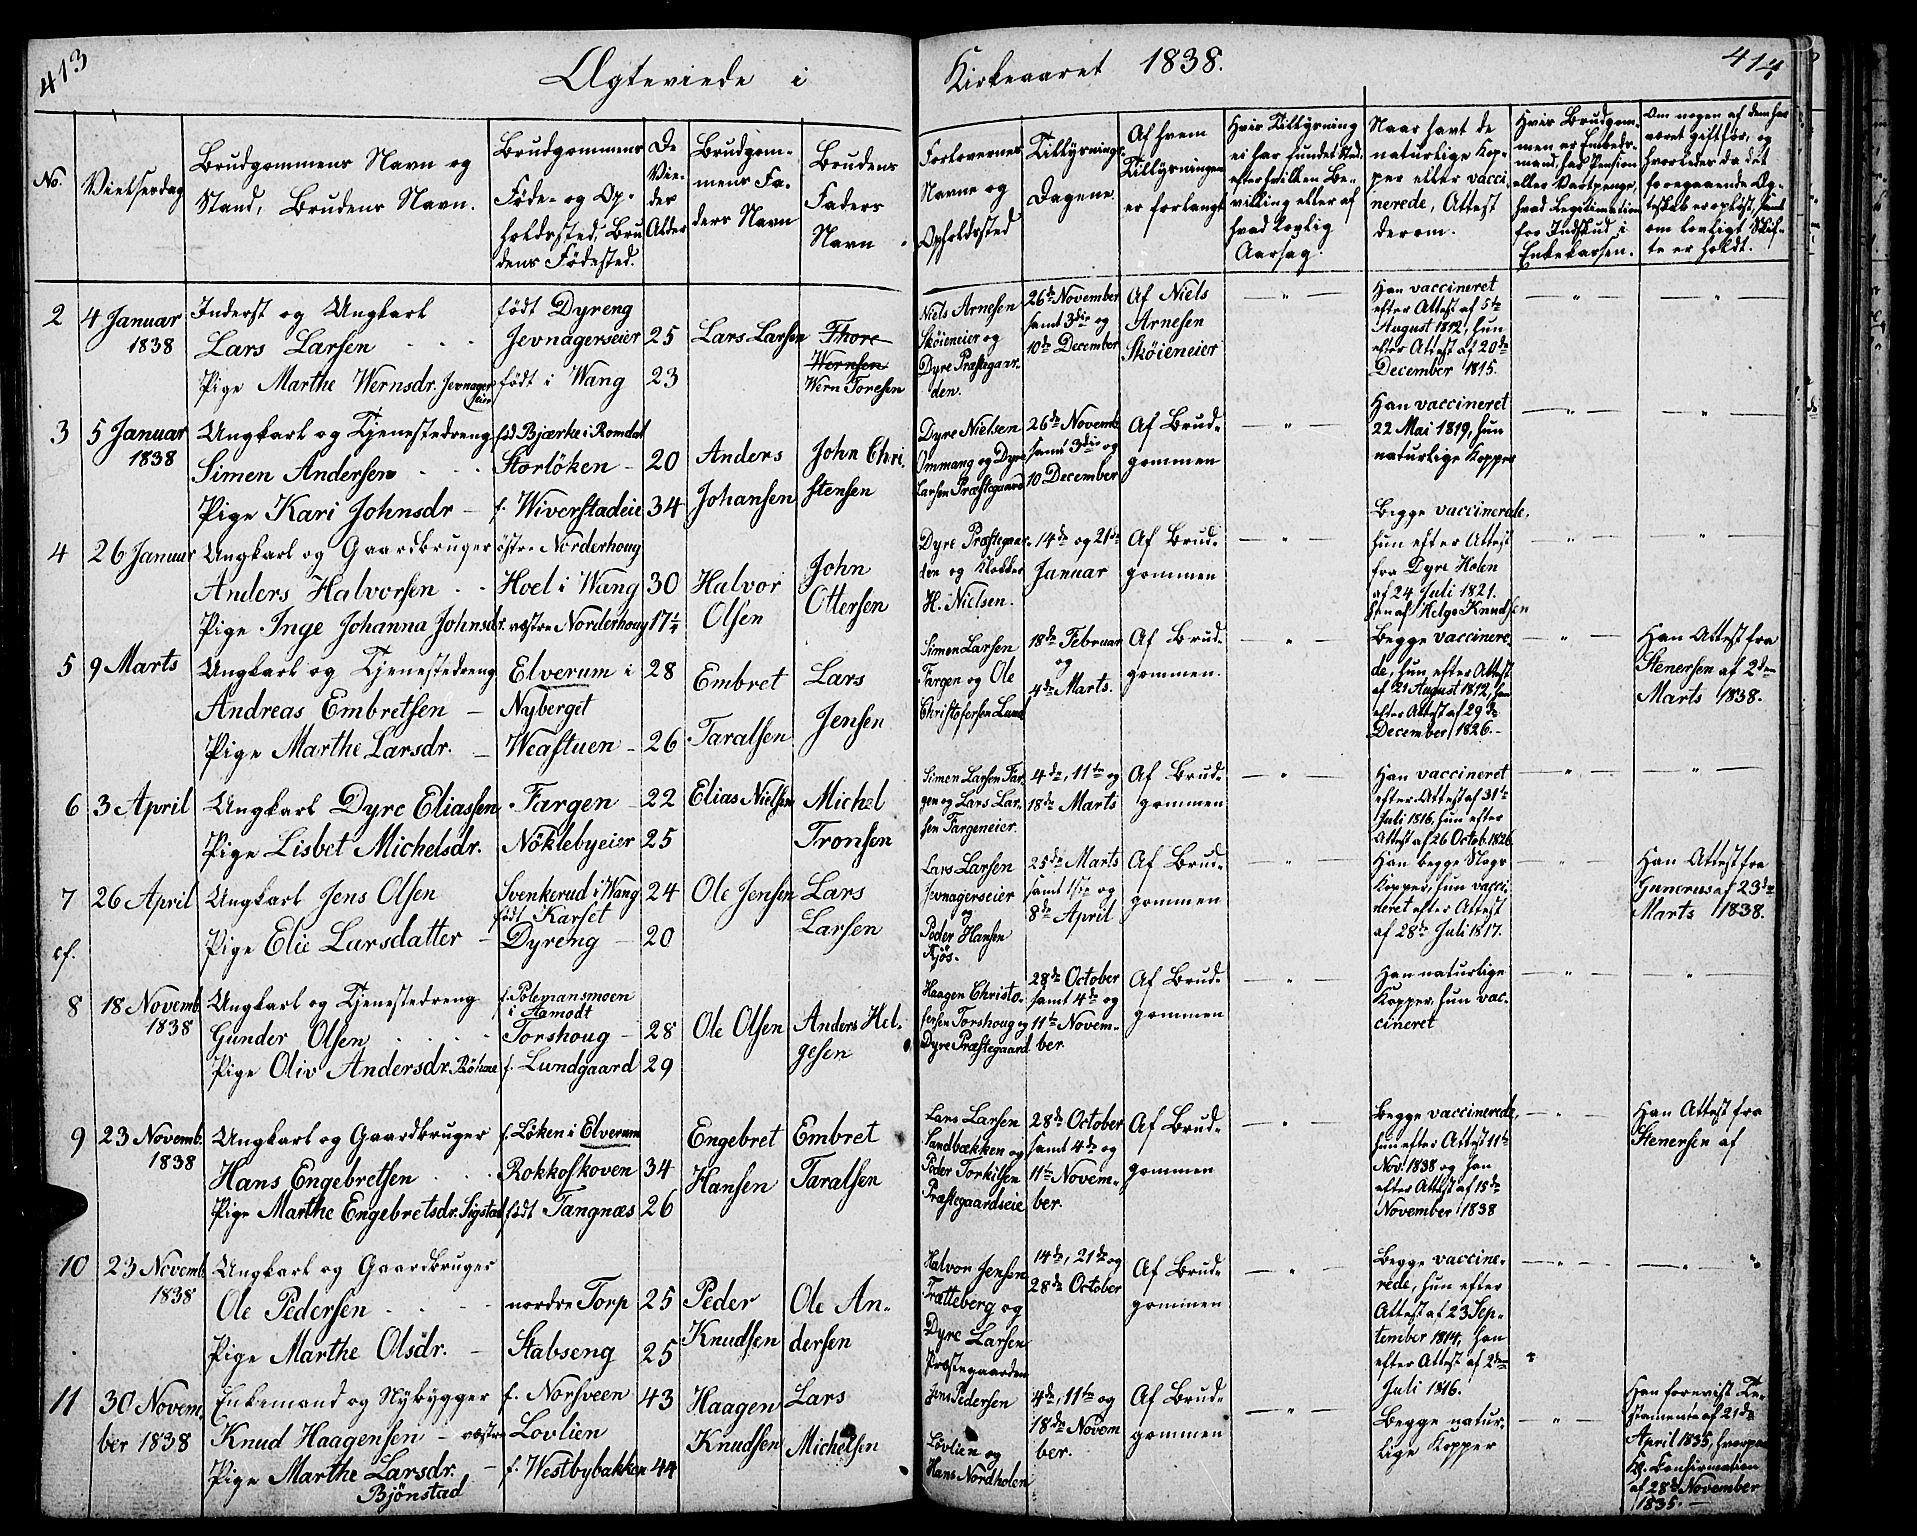 413
Ægteviede i
Kirkeaaret 1838.
414
No.
Vielsesdag
Brudgommens Navn og
Stand, Brudens Navn.
Brudgommens
Føde- og Op-
holdssted, Bru
dens Fødested.
De
Vie-
des
Alder
Brudgom-
mens Fa-
ders Navn
Brudens
Faders
Navn
Forlovernes
Navne og
Opholdssted
Tillysnings-
Dagene
Af hvem
Tillysningen
er forlangt
Hvis Tillysning
ei har fundet Sted,
efter hvilken Be-
villing eller af
hvad lovlig
Aarsag.
Naar havt de
naturlige Kop-
per eller vacci
nerede, Attest
derom.
Hvis Brudgom-
men er Embeds-
mand, har Pension
eller Vartpenge,
hvad Legitimation
for Indskud i
Enkekassen.
Om nogen af dem har
været gift før, og
hvorledes da det
foregaaende Æg-
teskab er opløst, samt
om lovligt Skif-
te er holdt.
2
4 Januar
1838
Inderst og Ungkarl
Lars Larsen
Pige Marthe Wernsdr. Jevnager
eier
født Dyreng
Jevnagerseier
født i Wang
25
23
Lars Larsen
Thore
Wernsen
Wern Toresen
Niels Arnesen
Skøieneier og
Dyre Præstegaar-
den.
26de November
samt 3die og
10de December
Af Niels
Arnesen
Skøieneier
Han vaccineret
efter Attest af 5te
August 1812, hun
efter Attest af 20de
December 1815.
3
5 Januar
1838
Ungkarl og Tjenestedreng
Simen Andersen
Pige Kari Johnsdr
fød Bjærke i Romdal
Storløken
f. Wiverstadeie
20
34
Anders
Johansen
John Chri-
stensen
Dyre Nielsen
Ommang og Dyre
Larsen Præstegaard
26de Novemb
samt 3die og
10 December
Af Brud-
gommen
Han vaccineret
22 Mai 1819, hun
naturlige Kopper
4
26 Januar
Ungkarl og Gaardbruger
Anders Halvorsen
Pige Inge Johanna Johnsdr.
østre Norderhoug
Hoel i Wang
vestre Norderhoug
30
17¼
Halvor
Olsen
John
Ottersen
Dyre Præstegaar-
den og Klokker
H. Nielsen.
14de og 21de
Januar
Af Brud-
gommen
Begge vaccinerede,
hun efter Attest
fra Dyre Holen
af 24 Juli 1821.
han af Helge Knudsen
5
9 Marts
Ungkarl og Tjenestedreng
Andreas Embretsen
Pige Marthe Larsdr.
Elverum i
Nyberget
Weastuen
28
26
Embret
Taralsen
Lars
Jensen
Simen Larsen
Fargen og Ole
Christofersen Lund
18de Februar
og
4de Marts.
Af Brud-
gommen.
Begge vaccinere-
de, hun efter Attest
af 21 August 1812, han
efter Attest af 29de
December 1826.
Han Attest fra
Stenersen af 2den
Marts 1838.
6
3 April
Ungkarl Dyre Eliassen
Pige Lisbet Michelsdr.
Fargen
Nøklebyeier
22
25
Elias Nielsen
Michel
Tronsen
Simen Larsen Far-
gen og Lars Lar-
sen Fargeneier.
4de, 11te og
18de Marts
Af Brud-
gommen
Han vaccineret
efter Attest af 31te
Juli 1816, hun efter
Attest af 26 Octob. 1826
7
cf.
26 April
Ungkarl Jens Olsen
Pige Elie Larsdatter
Svenkerud i Wang
født Karset
Dyreng
24
20
Ole Jensen
Lars
Larsen
Lars Larsen
Jevnagerseier
og
Peder Hansen
Kjøs.
25de Marts
samt 1ste og
8de April
Af Brud-
gommen
Han begge Slags
Kopper, hun vacci-
neret efter Attest
af 28de Juli 1817.
Han Attest fra
Gunerus af 23de
Marts 1838.
8
18 Novemb.
1838
Ungkarl og Tjenestedreng
Gunder Olsen
Pige Oliv Andersdr.
f. Polemansmoen
i Aamodt
Torshoug
f. Lundgaard
28
29
Ole Olsen
Anders Hel-
gesen
Haagen Christo-
fersen Torshoug og
Dyre Præstegaard
28de October
samt 4de og
11te Novem-
ber
Af Brud-
gommen
Han naturlige
Kopper, hun vac-
cineret
9
23 Novemb.
1838
Ungkarl og Gaardbruger
Hans Engebretsen
Pige Marthe Engebretsdr. Sigstad
f. Løken i Elverum
Rokkoskoven
født Tangnæs
34
26
Engebret
Hansen
Embret
Taralsen
Lars Larsen
Sandbækken og
Peder Torkilsen
Præstegaardseie
28de October
samt 4de og
11te Novem-
ber.
Af Brud-
gommen
Begge vaccinerede,
hun efter Attest 11te
Nov. 1838 og han
efter Attest af 15de
November 1838
Han Attest fra
Stenersen af
10
23 Novemb.
1838
Ungkarl og Gaardbruger
Ole Pedersen
Pige Marthe Olsdr.
nordre Torp
Stabseng
25
25
Peder
Knudsen
Ole An-
dersen
Halvor Jensen
Trætteberg og
Dyre Larsen
Præstegaarden
14de, 21de og
28de October
Af Brud-
gommen
Begge vaccine-
rede, hun efter
Attest af 23 Sep-
tember 1814, han
efter Attest af 2den
Juli 1816.
11
30 Novem-
ber 1838
Enkemand og Nybygger
Knud Haagensen – vestre
Pige Marthe Larsdr.
Bjønstad
f. Norsveen
Lovlien
f. Westbybakken
43
44
Haagen
Knudsen
Lars
Michelsen
Jens Pedersen
Lövlien og
Hans Nordholen
4de, 11te og
18de Novem
ber.
Af Brud-
gommen
Begge natur-
lige Kopper
Han forevist Te-
stamente af 21de
April 1835, hvorpaa
Kgl. Confirmation
af 28de November
1835.